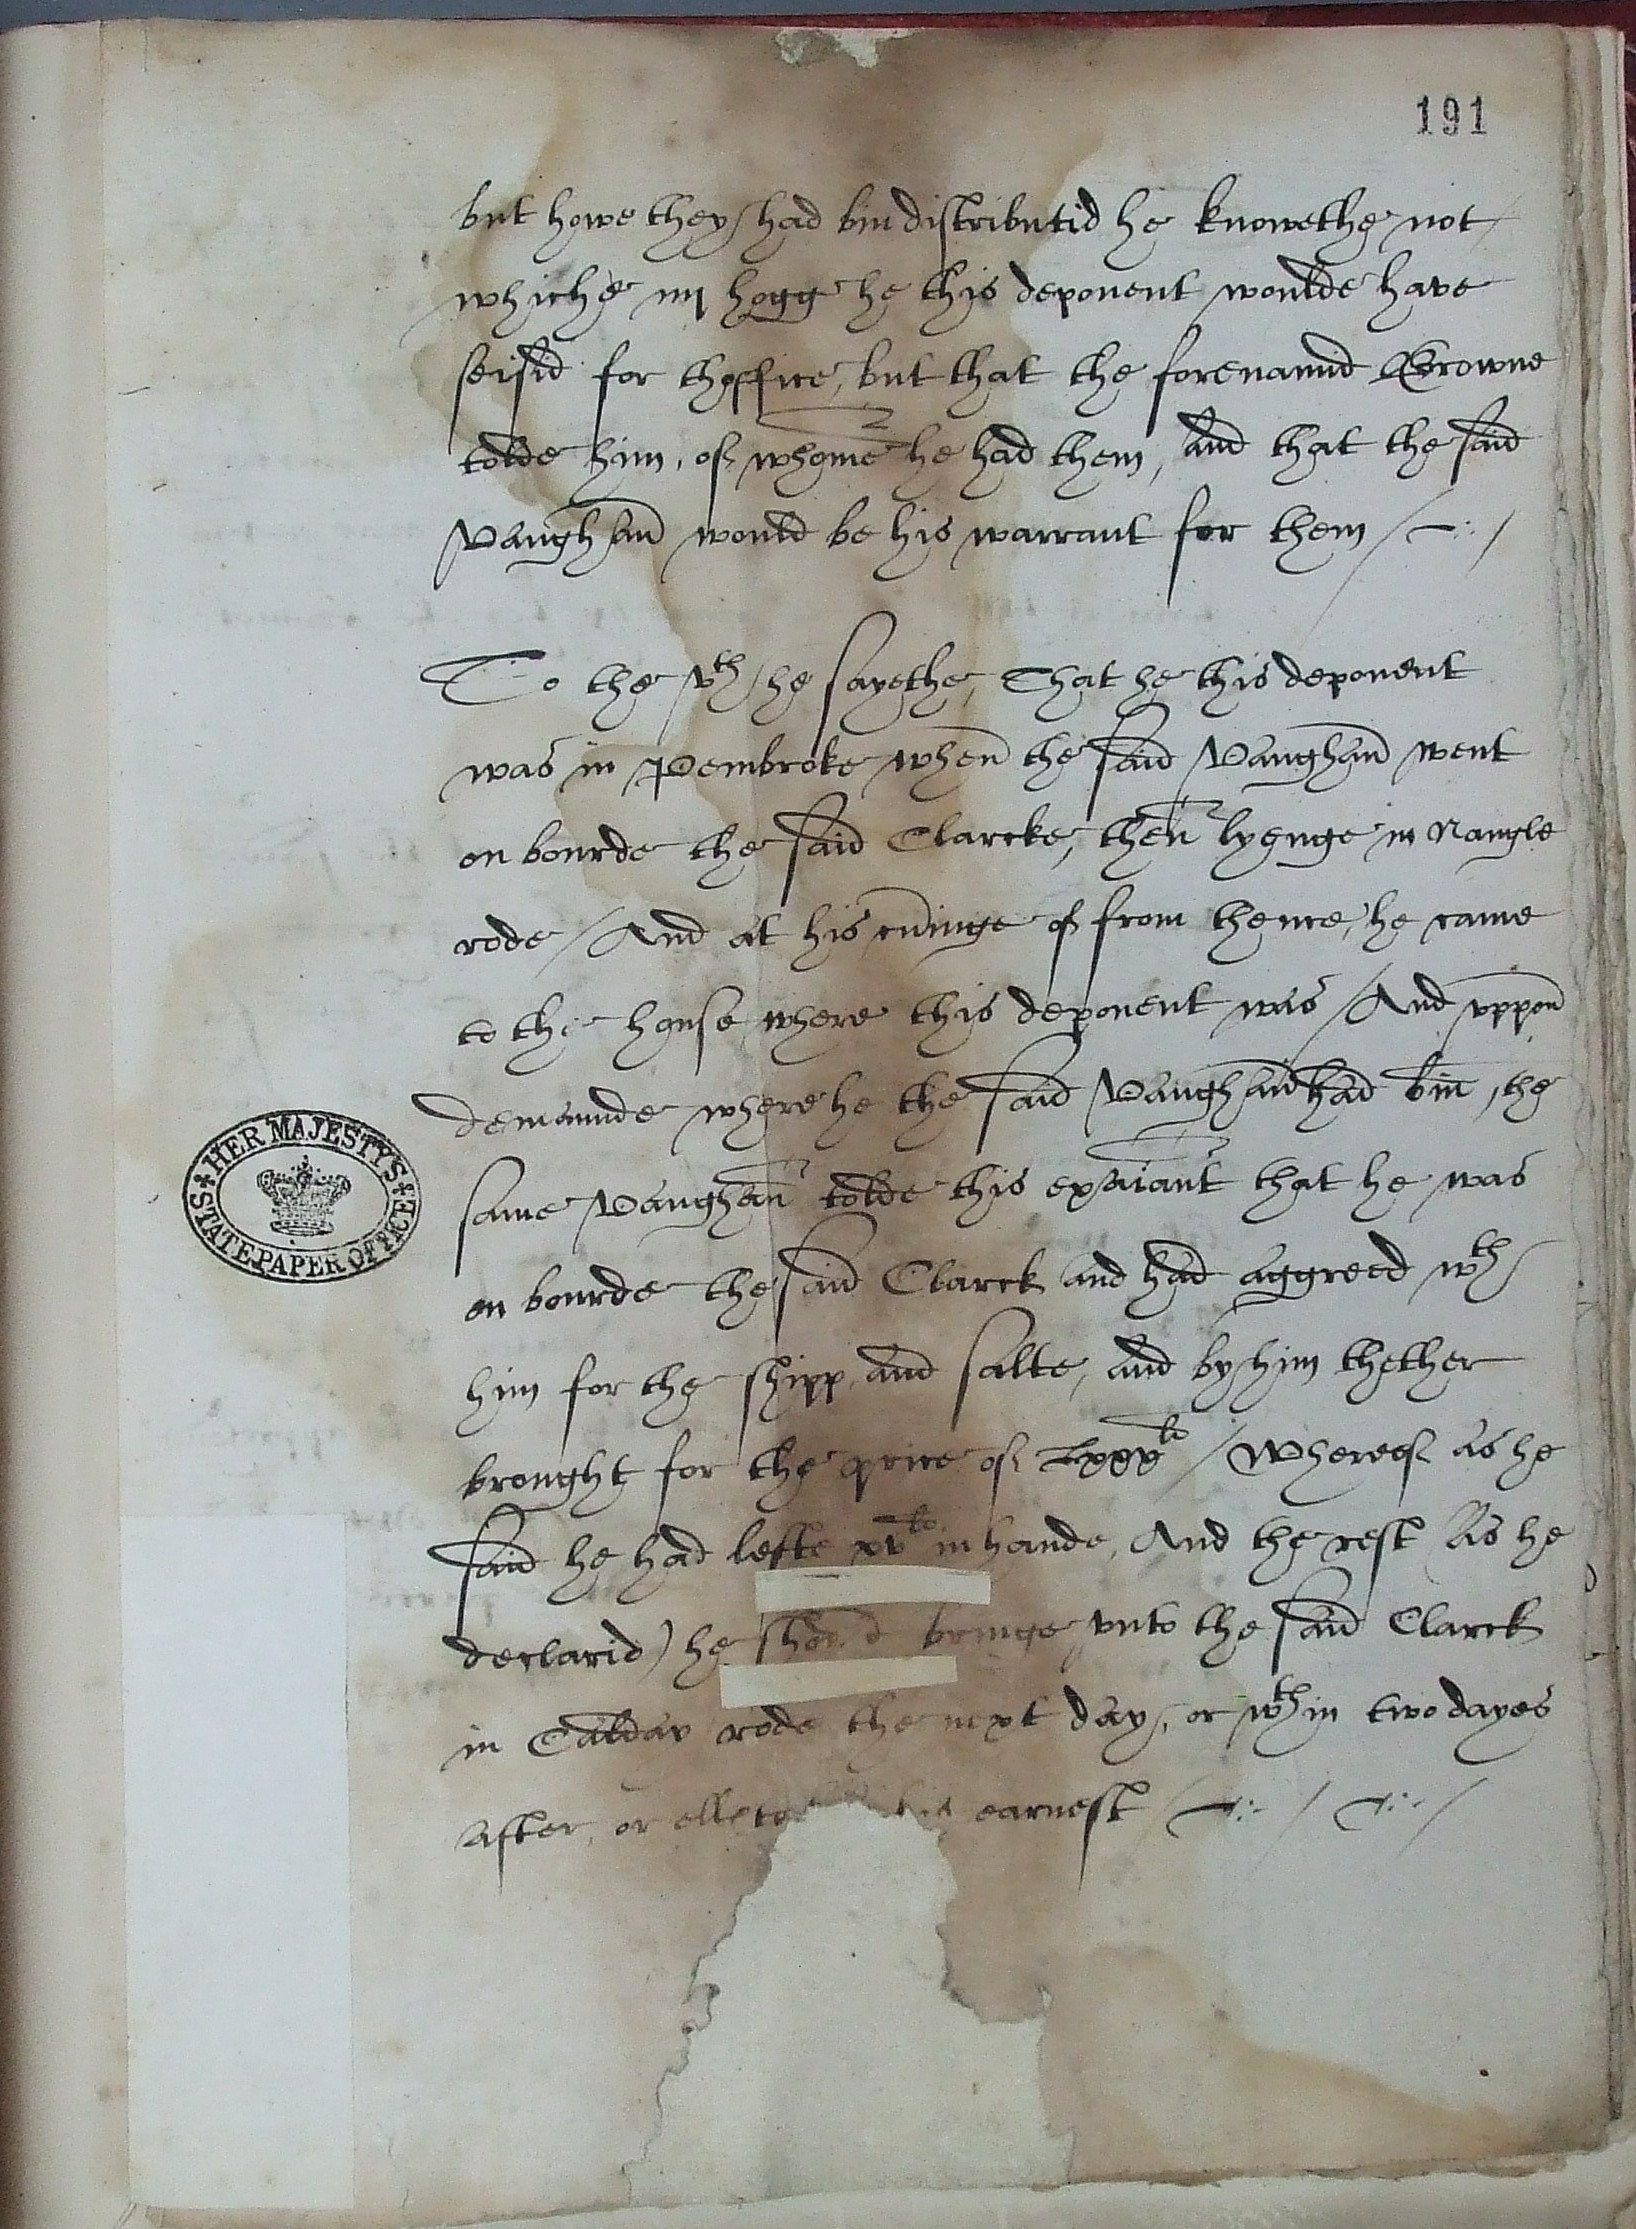 191
but howe they had bin distributid he knowethe not
whiche iiij hogg he this deponent woulde have
seisid for thoffice, but that the forenamid Browne
tolde him, of whome he had them, and that the said
Vaughan would be his warrant for them
To the vth he sayethe, That he this deponent
was in Pembroke when the said Vaughan went
on bourde the said Clarcke, then lyenge in Nangle
rode / And at his cominge of from thence, he came
to the house where this deponent was / And vppon
demaunde where he the said Vaughan had bin, the
same Vaughan tolde this exaiant that he was
on bourde the said Clarck and had aggreed wth
him for the shipp and salte, and by him thether
brought for the price of lxxxli / Whereof as he
said he had lefte xvli in hande, And the rest (As he
declarid) he should bringe vnto the said Clarck
in Calday rode the next day, or wthin two dayes
after, or elles his earnest
HER MAJESTY'S
STATE PAPER OFFICE